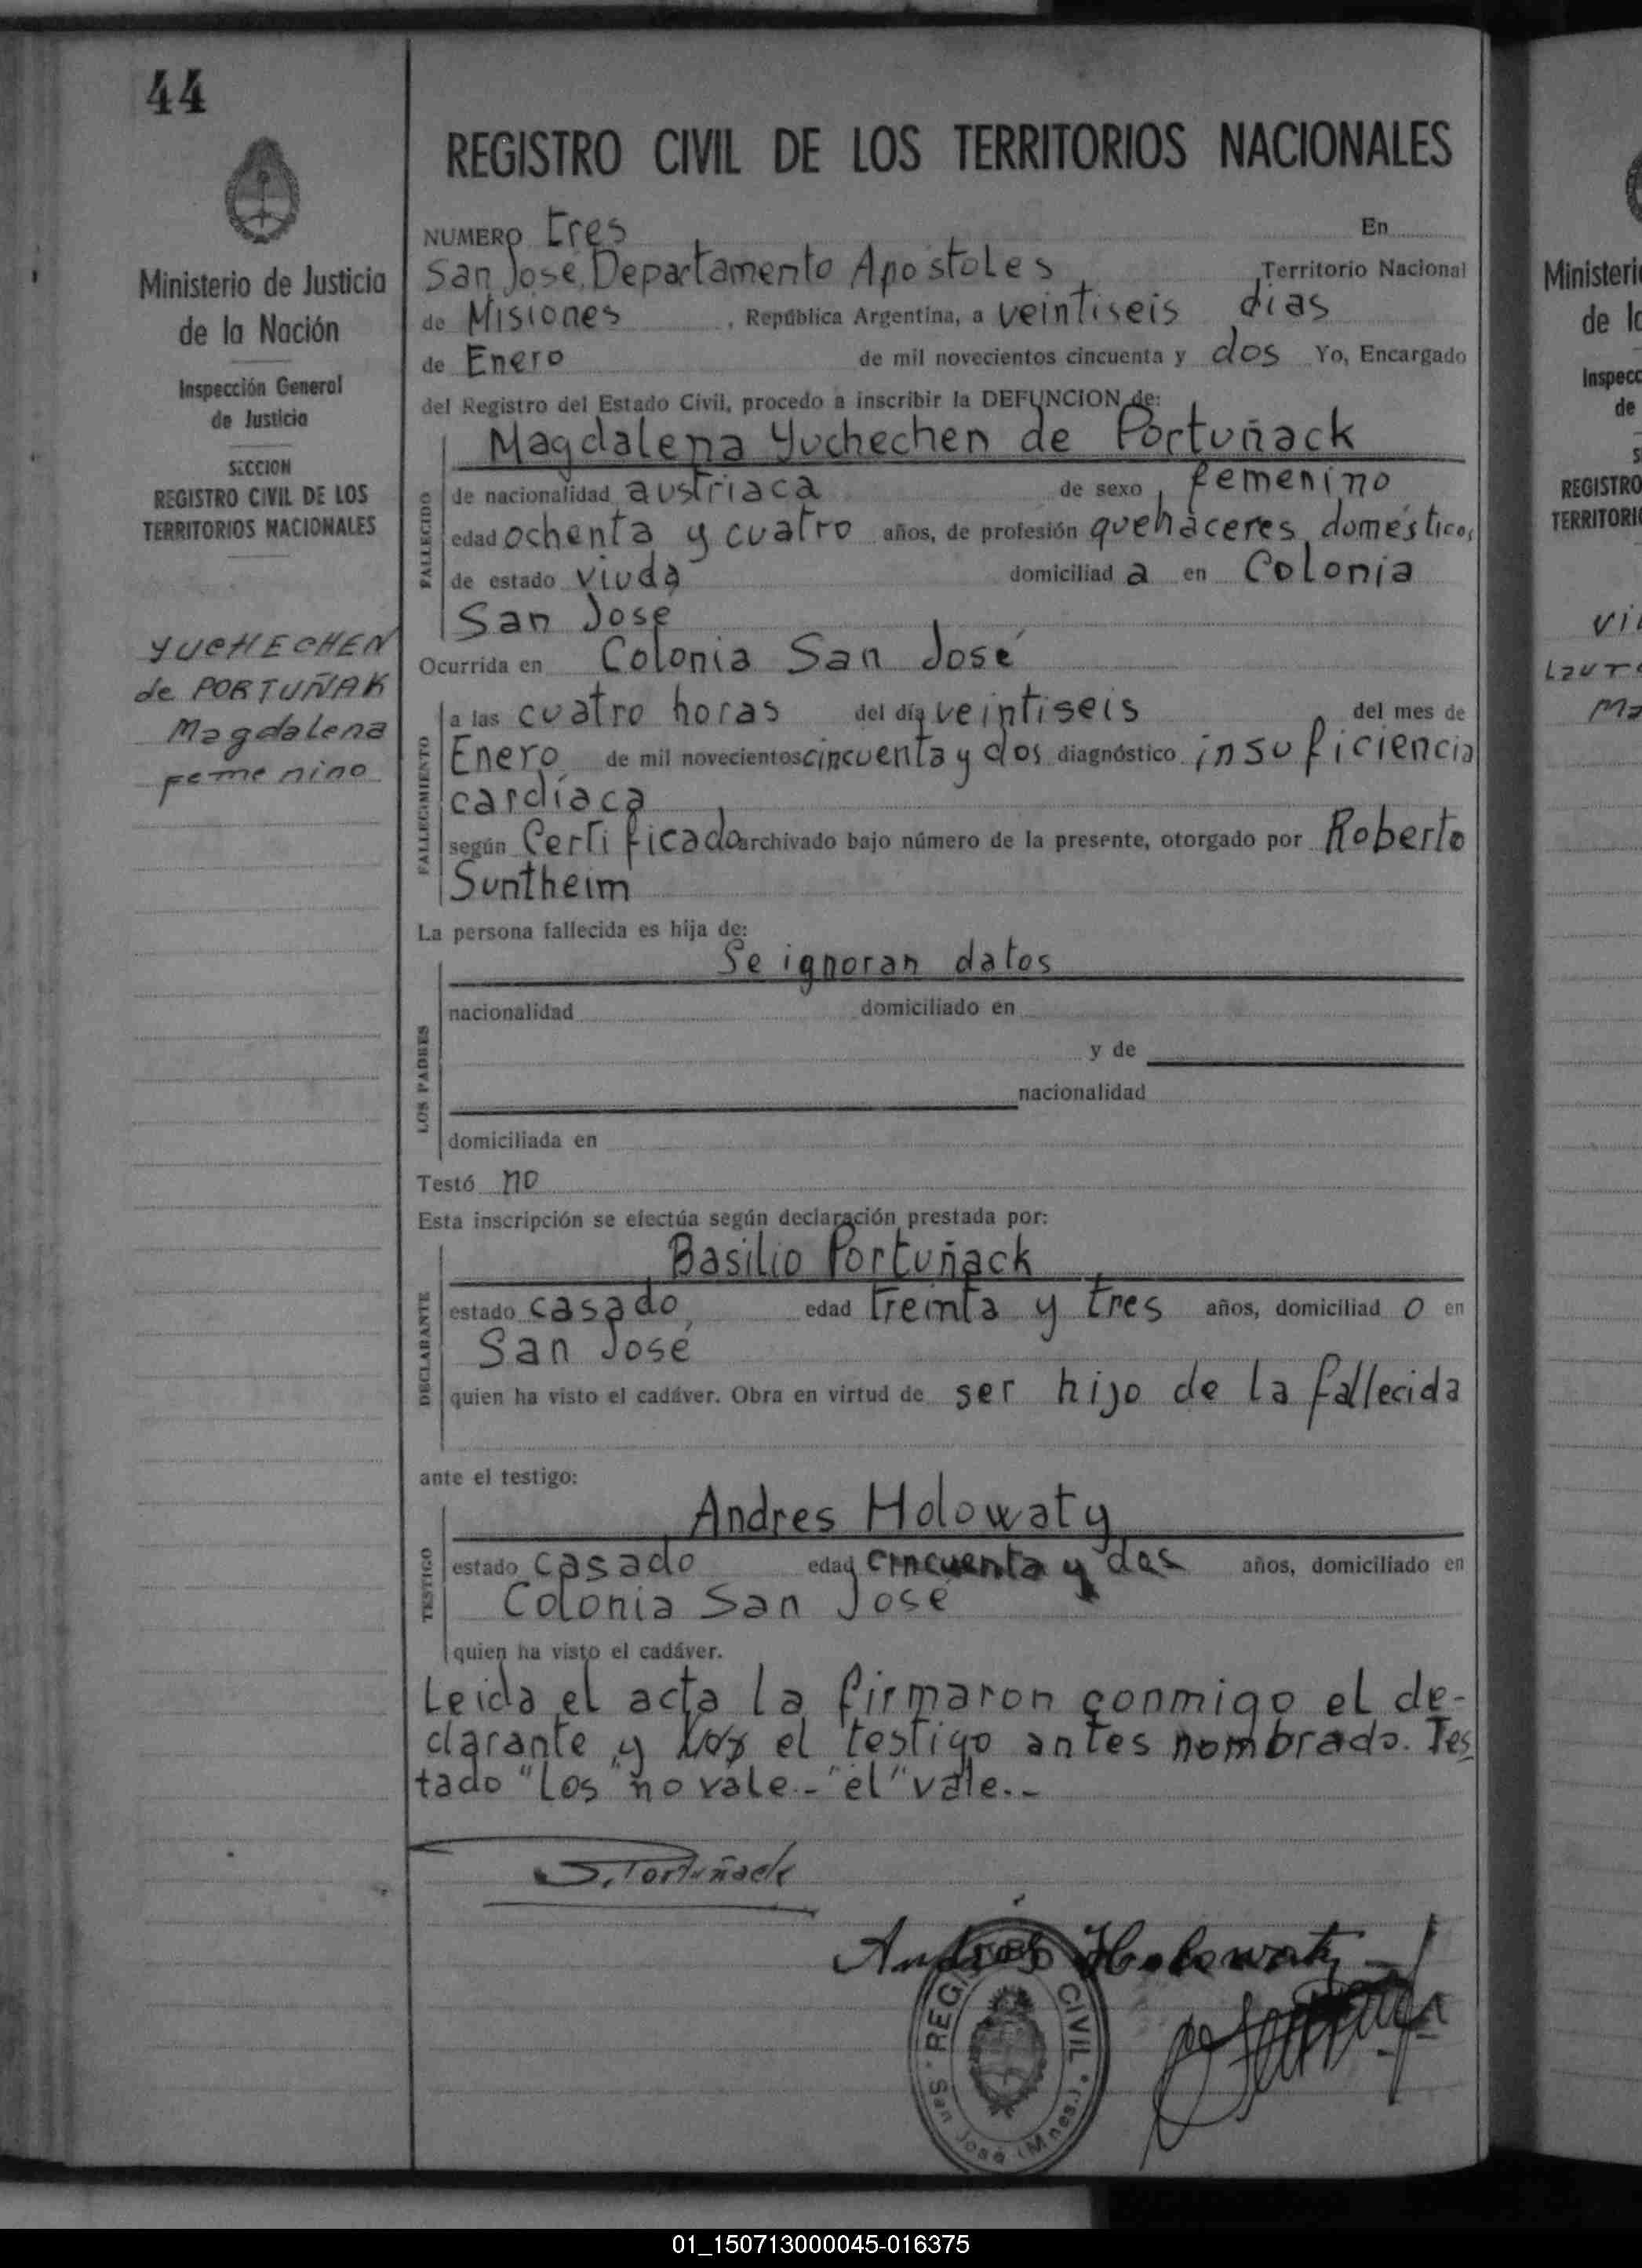 44
REGISTRO CIVIL DE LOS TERRITORIOS NACIONALES
Ministerio de Justicia
de la Nación
Inspección General
de Justicia
SECCION
REGISTRO CIVIL DE LOS
TERRITORIOS NACIONALES
YUCHECHEN
de PORTUÑAK
Magdalena
Femenino
NUMERO tres En
San José, Departamento Apostoles Territorio Nacional
de Misiones, República Argentina, a veintiseis dias
de Enero de mil novecientos cincuenta y dos Yo, Encargado
del Registro del Estado Civil, procedo a inscribir la DEFUNCION de:
Magdalena Yuchechen de Portuñack
FALLECIDO
de nacionalidad austriaca de sexo femenino
edad ochenta y cuatro años, de profesión quehaceres domésticos
de estado viuda domiciliad a en Colonia
San Jose
Ocurrida en Colonia San José
FALLECIMIENTO
a las cuatro horas del día veintiseis del mes de
Enero de mil novecientos cincuenta y dos diagnóstico insuficiencia
cardíaca
según Certificado archivado bajo número de la presente, otorgado por Roberto
Suntheim
La persona fallecida es hija de:
Se ignoran datos
LOS PADRES
nacionalidad domiciliado en
y de
nacionalidad
domiciliada en
Testó no
Esta inscripción se efectúa según declaración prestada por:
Basilio Portuñack
DECLARANTE
estado casado, edad treinta y tres años, domiciliad o en
San José
quien ha visto el cadáver. Obra en virtud de ser hijo de la fallecida
ante el testigo:
Andres Holowaty
TESTIGO
estado casado edad cincuenta y dos años, domiciliado en
Colonia San José
quien ha visto el cadáver.
Leida el acta la firmaron conmigo el de-
clarante y los el testigo antes nombrado. Tes
tado "Los" no vale.- "el" vale.-
Portuñack
Andrés Holowaty
REGISTRO CIVIL
San José (Mnes.)
Ministeri
de l
Inspecc
de
S
REGISTRO
TERRITORI
01_150713000045-016375